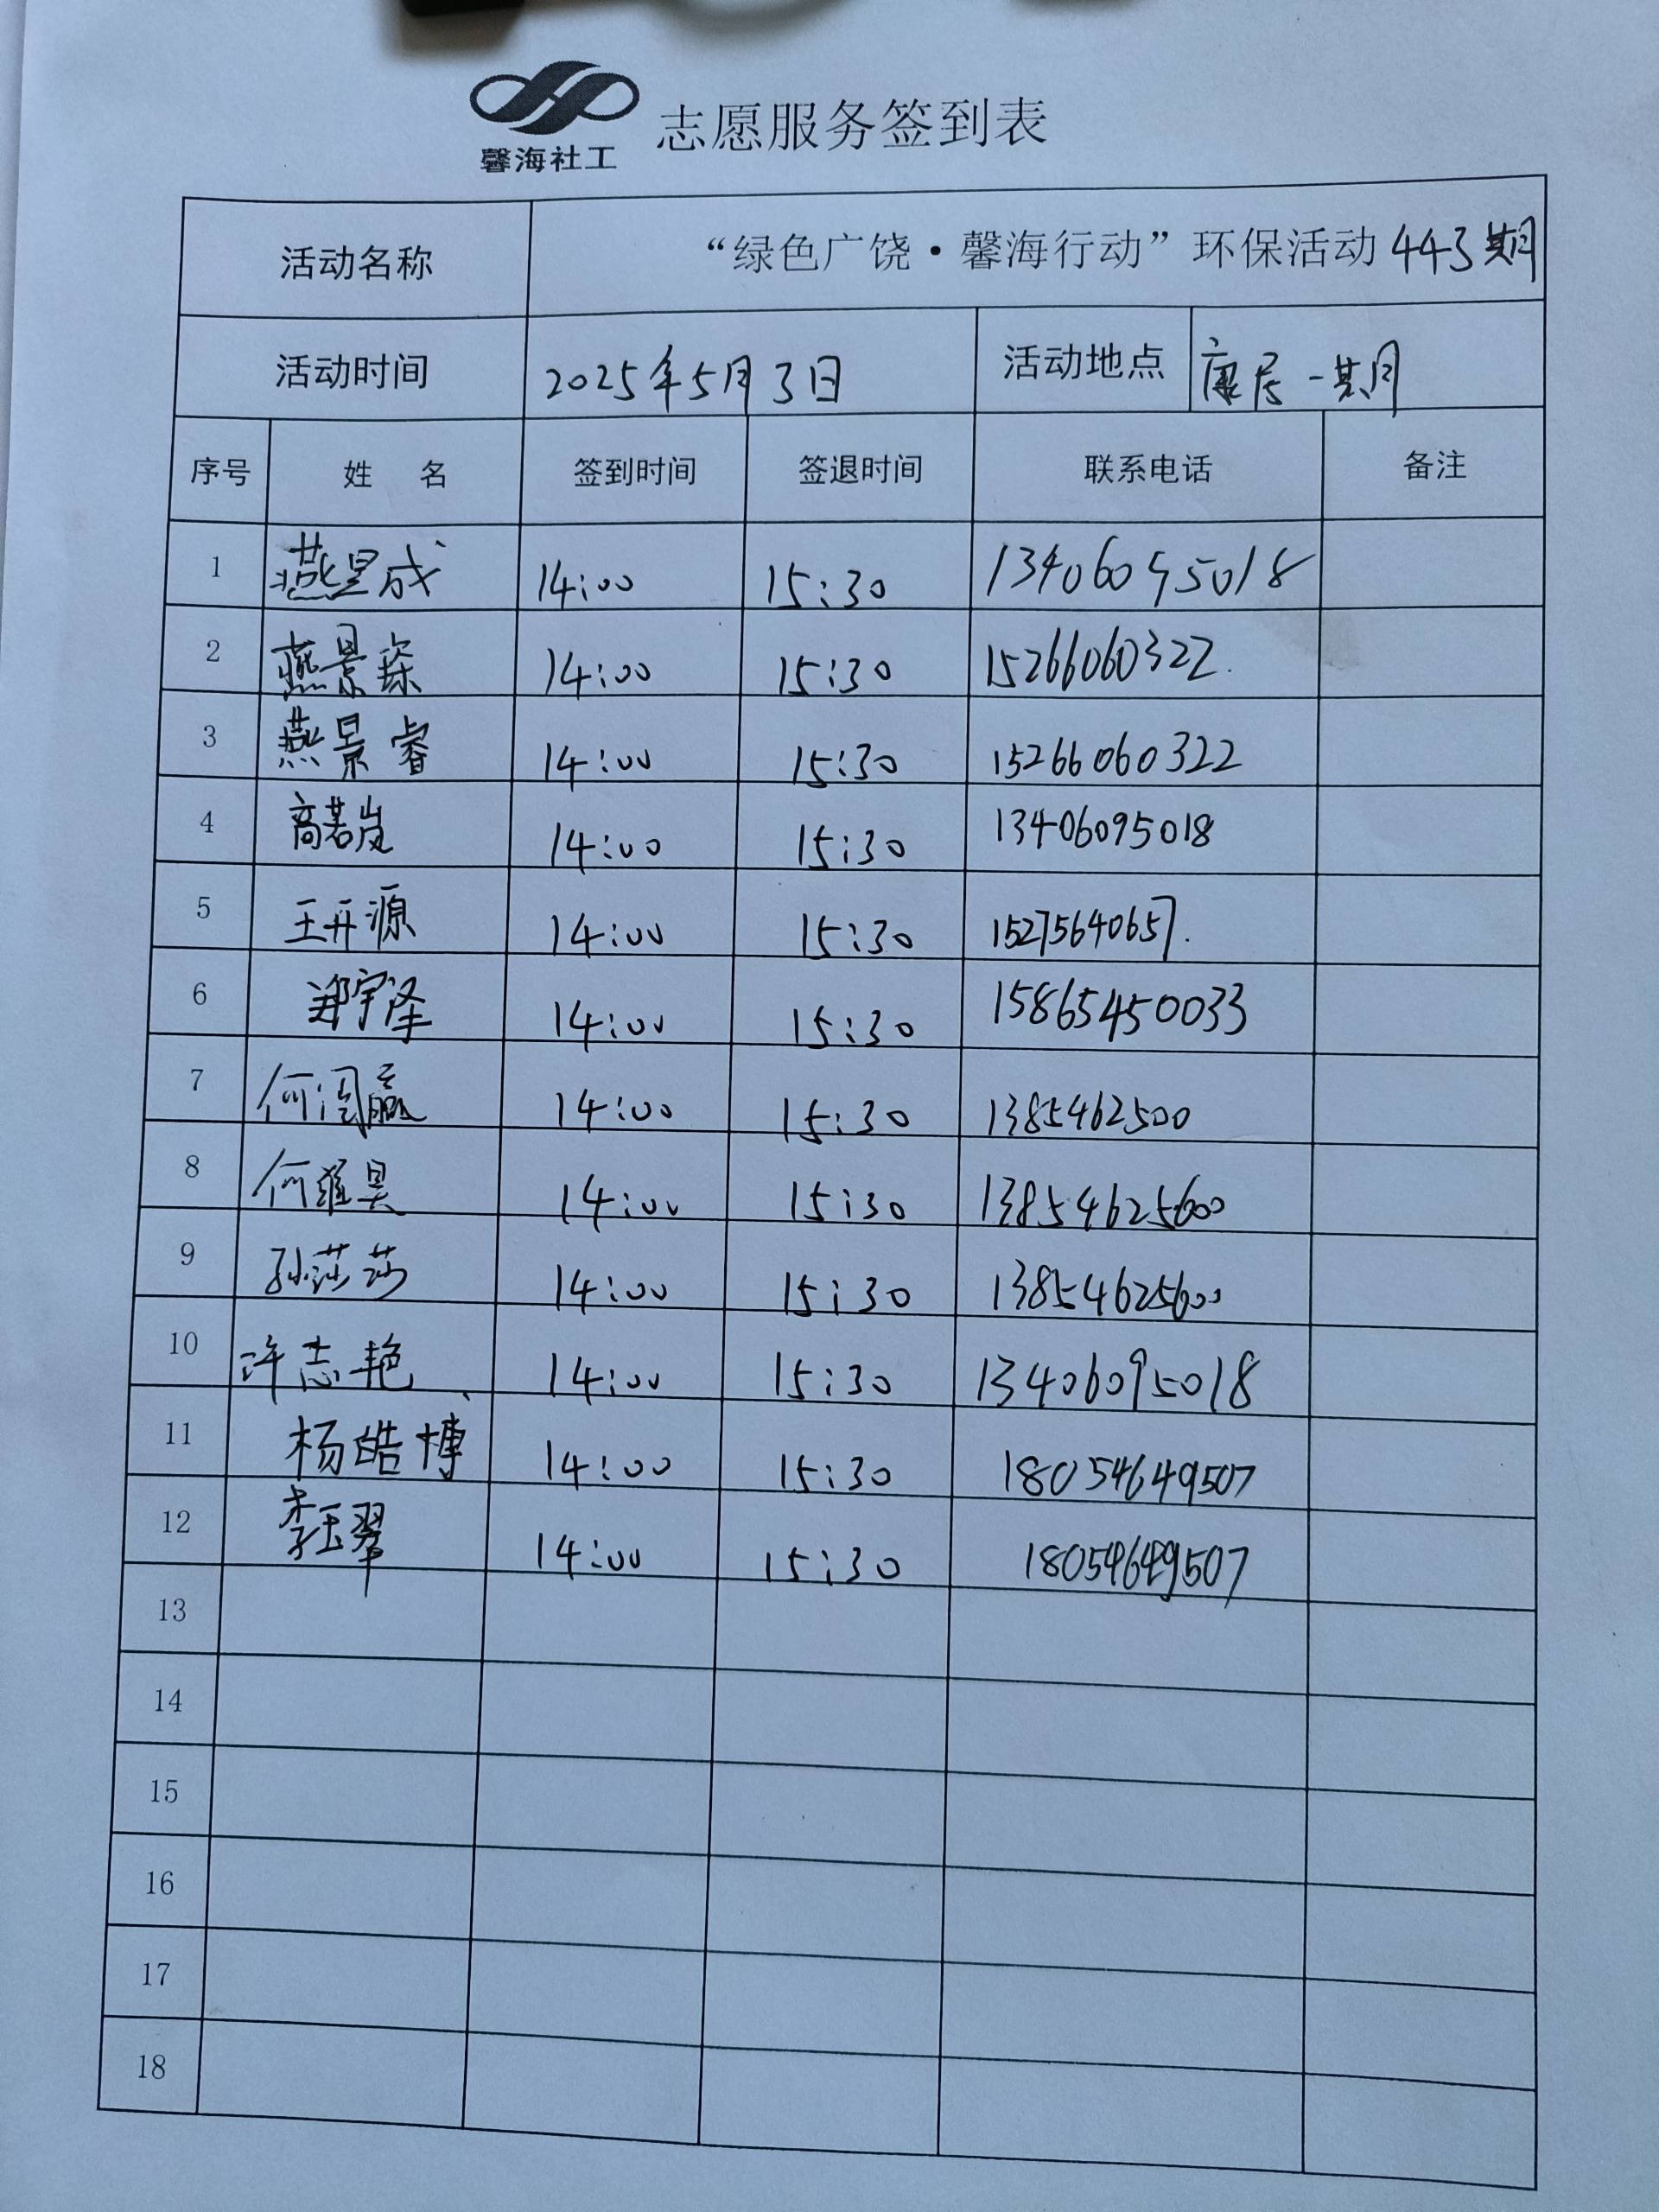 馨海社工
志愿服务签到表
活动名称 “绿色广饶·馨海行动”环保活动 443期
活动时间 2025年5月3日 活动地点 康居一期
序号 姓 名 签到时间 签退时间 联系电话 备注
1 燕昱成 14:00 15:30 13406095018
2 燕景琛 14:00 15:30 15266060322.
3 燕景睿 14:00 15:30 15266060322
4 高若岚 14:00 15:30 13406095018
5 王开源 14:00 15:30 15275640657.
6 郑宇泽 14:00 15:30 15865450033
7 何润赢 14:00 15:30 1385462500
8 何雅昊 14:00 15:30 13854625600
9 孙莎莎 14:00 15:30 13854625600
10 许志艳 14:00 15:30 13406095018
11 杨皓博 14:00 15:30 18054649507
12 李玉翠 14:00 15:30 18054649507
13
14
15
16
17
18